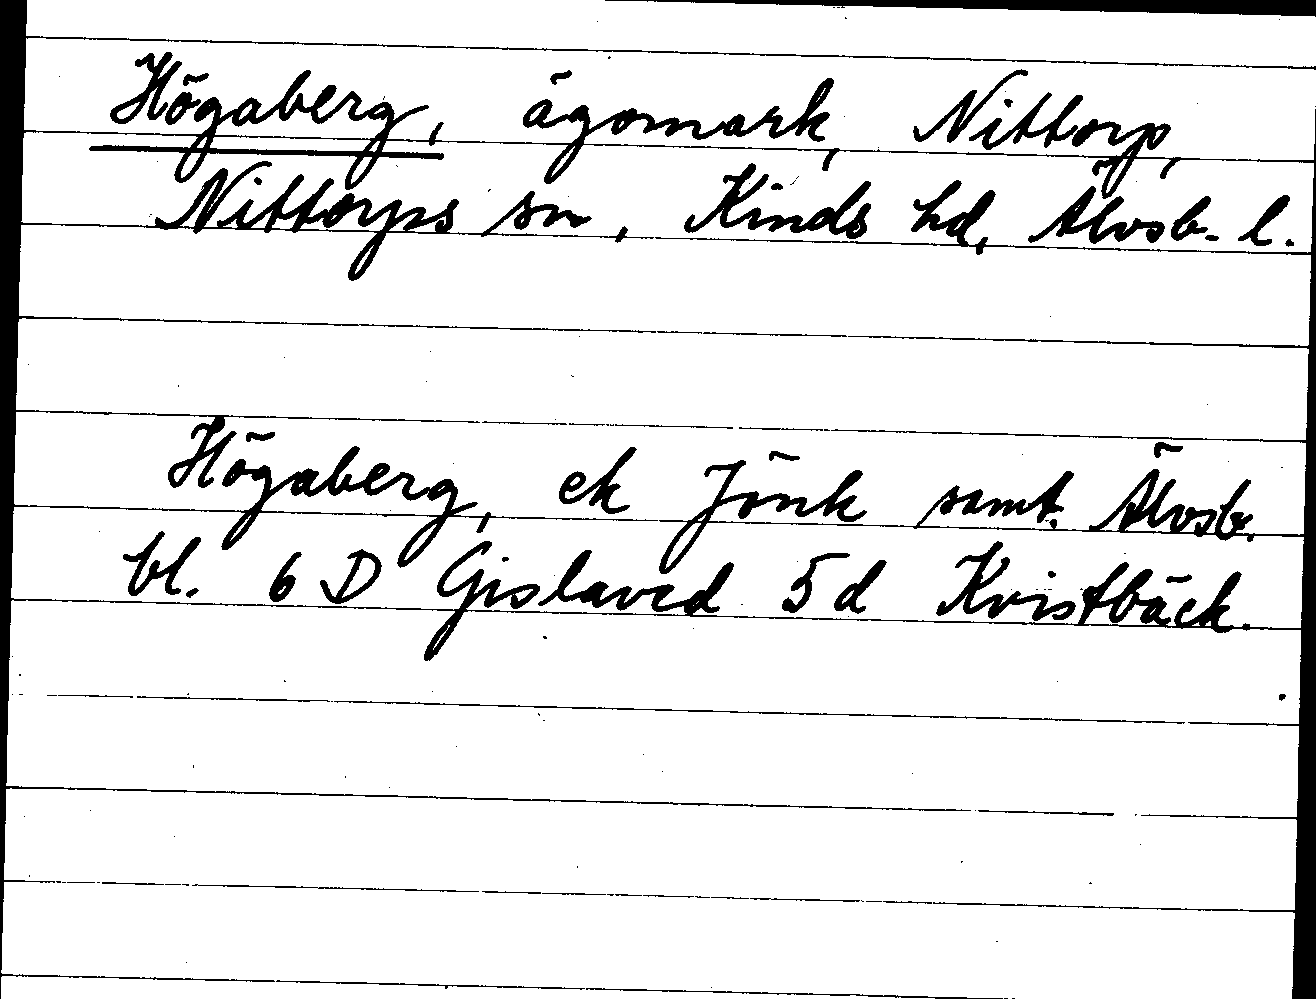 Högaberg, ägomark, Nittorp,
Nittorps sn, Kinds hd, Älvsb. l.
Högaberg, ek Jönk samt. Älvsb.
bl. 6 D Gislaved 5 d Kvistbäck.